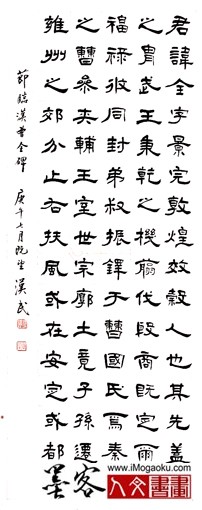 君諱全字景完敦煌效穀人也其先蓋
之胄武王秉乾之機翦伐殷商既定爾
福祿攸同封弟叔振鐸于曹國氏焉秦
之曹參夾輔王室世宗廓土竟子孫遷
雍州之郊分止右扶風或在安定或都
節臨漢曹全碑 庚午七月既望 漢
墨客
www.iMogaoku.com
人文書畫